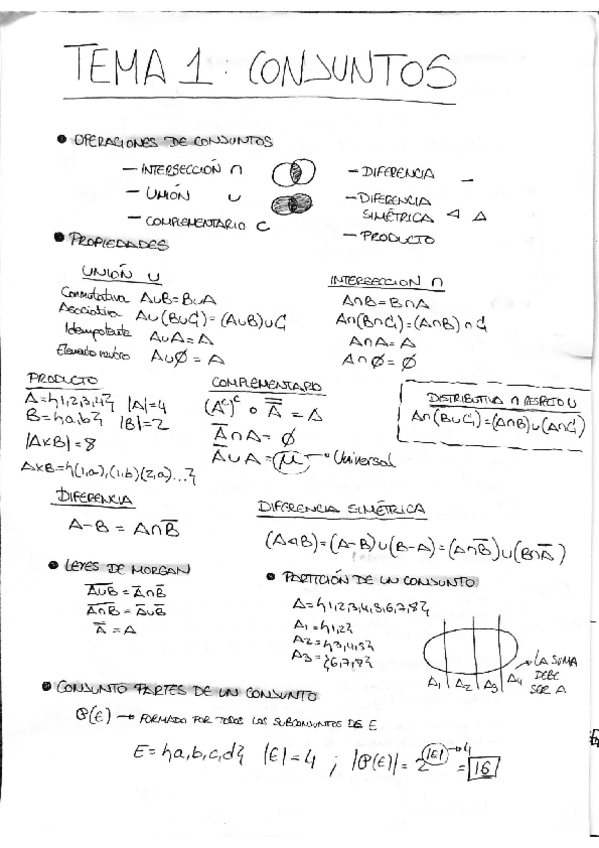 TEMA 1: CONJUNTOS
• OPERACIONES DE CONJUNTOS
— INTERSECCIÓN ∩
— UNIÓN ∪
— COMPLEMENTARIO C
— DIFERENCIA —
— DIFERENCIA SIMÉTRICA ⊲ Δ
— PRODUCTO
• PROPIEDADES
UNIÓN ∪
Conmutativa A∪B=B∪A
Asociativa A∪(B∪C)=(A∪B)∪C
Idempotente A∪A=A
Elemento neutro A∪∅=A
INTERSECCION ∩
A∩B=B∩A
A∩(B∩C)=(A∩B)∩C
A∩A=A
A∩∅=∅
PRODUCTO
A={1,2,3,4} |A|=4
B={a,b} |B|=2
|A×B|=8
A×B={(1,a),(1,b)(2,a)...}
COMPLEMENTARIO
(Aᶜ)ᶜ o A̿ = A
A̅∩A=∅
A∪A=μ → Universal
DISTRIBUTIVA ∩ RESPECTO ∪
A∩(B∪C)=(A∩B)∪(A∩C)
DIFERENCIA
A-B=A∩B̅
DIFERENCIA SIMÉTRICA
(A⊲B)=(A-B)∪(B-A)=(A∩B̅)∪(B∩A̅)
• LEYES DE MORGAN
A̅∪̅B̅=A̅∩B̅
A̅∩̅B̅=A̅∪B̅
A̿=A
• PARTICIÓN DE UN CONJUNTO
A={1,2,3,4,5,6,7,8}
A1={1,2}
A2={3,4,5}
A3={6,7,8}
A1 A2 A3 A4
→ LA SUMA
DEBE
SER A
• CONJUNTO PARTES DE UN CONJUNTO
P(E) → FORMADO POR TODOS LOS SUBCONJUNTOS DE E
E={a,b,c,d} |E|=4 ; |P(E)|=2^|E|→4 =16